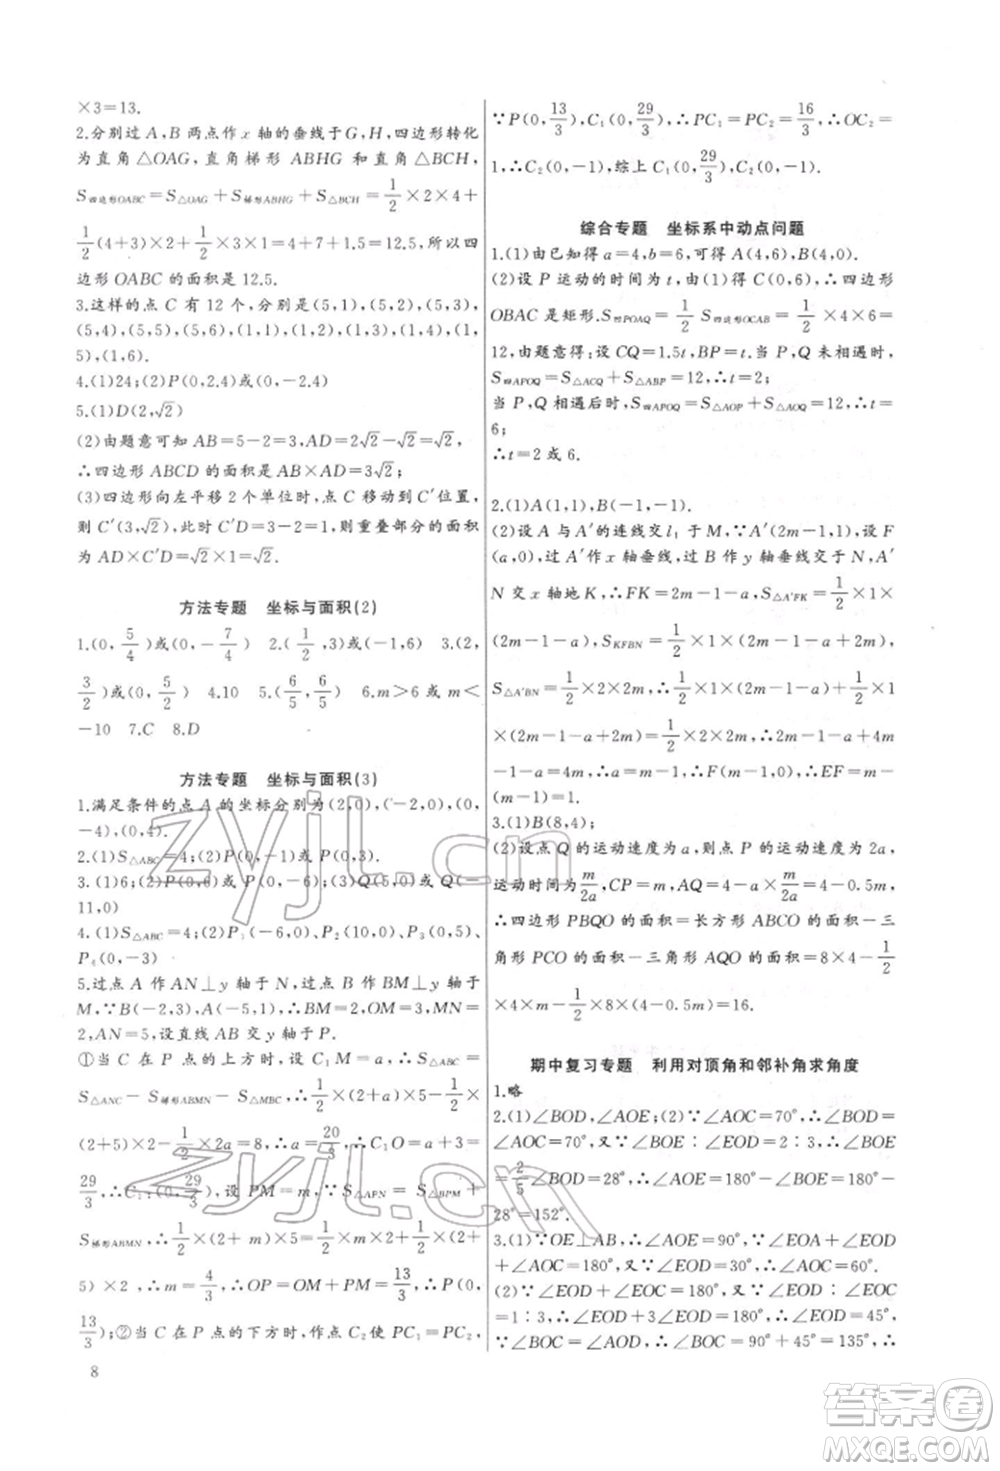 ×3=13.
2.分别过 A,B 两点作 x 轴的垂线于 G,H,四边形转化
为直角△OAG,直角梯形 ABHG 和直角△BCH,
S四边形OABC=S△OAG+S梯形ABHG+S△BCH=1/2×2×4+
1/2(4+3)×2+1/2×3×1=4+7+1.5=12.5,所以四
边形 OABC 的面积是 12.5.
3.这样的点 C 有 12 个,分别是(5,1),(5,2),(5,3),
(5,4),(5,5),(5,6),(1,1),(1,2),(1,3),(1,4),(1,
5),(1,6).
4.(1)24;(2)P(0,2.4)或(0,-2.4)
5.(1)D(2,√2)
(2)由题意可知 AB=5-2=3,AD=2√2-√2=√2,
∴四边形 ABCD 的面积是 AB×AD=3√2;
(3)四边形向左平移 2 个单位时,点 C 移动到 C′位置,
则 C′(3,√2),此时 C′D=3-2=1,则重叠部分的面积
为 AD×C′D=√2×1=√2.
方法专题 坐标与面积(2)
1.(0,5/4)或(0,-7/4) 2.(1/2,3)或(-1,6) 3.(2,
3/2)或(0,5/2) 4.10 5.(6/5,6/5) 6.m>6 或 m<
-10 7.C 8.D
方法专题 坐标与面积(3)
1.满足条件的点 A 的坐标分别为(2,0),(-2,0),(0,
-4),(0,4).
2.(1)S△ABC=4;(2)P(0,-2)或(0,3).
3.(1)6;(2)P(0,6)或(0,-2);(3)Q(5,0)或 Q(-
11,0)
4.(1)S△ABC=4;(2)P1(-6,0),P2(10,0),P3(0,5),
P4(0,-3)
5.过点 A 作 AN⊥y 轴于 N,过点 B 作 BM⊥y 轴于
M,∵B(-2,3),A(-5,1),∴BM=2,OM=3,MN=
2,AN=5,设直线 AB 交 y 轴于 P.
①当 C 在 P 点的上方时,设 C1M=a,∴S△ABC=
S△ANC-S梯形ABMN-S△MBC,∴1/2(a+2)×5-1/2×
(2+5)×2-1/2×2a=8,∴a=20/3,∴C1O=a+3=
29/3,∴C1(0,29/3),设 PM=m,∵S△APN=S△BPM+
S梯形ABMN,∴1/2×(2+m)×5=1/2×2m+1/2×(2+
5)×2,∴m=4/3,∴OP=OM+PM=13/3,∴P(0,
13/3);②当 C 在 P 点的下方时,作点 C2 使 PC1=PC2,
8
∵P(0,13/3),C1(0,29/3),∴PC1=PC2=16/3,∴OC2=
1,∴C2(0,-1),综上 C1(0,29/3),C2(0,-1).
综合专题 坐标系中动点问题
1.(1)由已知得 a=4,b=6,可得 A(4,6),B(4,0).
(2)设 P 运动的时间为 t,由(1)得 C(0,6),∴四边形
OBAC 是矩形.S凹POAQ=1/2 S四边形OCAB=1/2×4×6=
12,由题意得:设 CQ=1.5t,BP=t.当 P,Q 未相遇时,
S四APOQ=S△ACQ+S△ABP=12,∴t=2;
当 P,Q 相遇后时,S四APOQ=S△AOP+S△AOQ=12,∴t=
6;
∴t=2 或 6.
2.(1)A(1,1),B(-1,-1).
(2)设 A 与 A′的连线交 l1 于 M,∵A′(2m-1,1),设 F
(a,0),过 A′作 x 轴垂线,过 B 作 y 轴垂线交于 N,A′
N 交 x 轴地 K,∴FK=2m-1-a,S△A′FK=1/2×1×
(2m-1-a),SKFBN=1/2×1×(2m-1-a+2m),
S△A′BN=1/2×2×2m,∴1/2×1×(2m-1-a)+1/2×1
×(2m-1-a+2m)=1/2×2×2m,∴2m-1-a+4m
-1-a=4m,∴a=m-1,∴F(m-1,0),∴EF=m-
(m-1)=1.
3.(1)B(8,4);
(2)设点 Q 的运动速度为 a,则点 P 的运动速度为 2a,
运动时间为m/2a,CP=m,AQ=4-m/2a×a=4-0.5m,
∴四边形 PBQO 的面积=长方形 ABCO 的面积-三
角形 PCO 的面积-三角形 AQO 的面积=8×4-1/2
×4×m-1/2×8×(4-0.5m)=16.
期中复习专题 利用对顶角和邻补角求角度
1.略
2.(1)∠BOD,∠AOE;(2)∵∠AOC=70°,∴∠BOD
=∠AOC=70°,又∵∠BOE:∠EOD=2:3,∴∠BOE
=2/5∠BOD=28°,∴∠AOE=180°-∠BOE=180°-
28°=152°.
3.(1)∵OE⊥AB,∴∠AOE=90°,∵∠EOA=∠EOD
+∠AOD=90°,∴∠EOD=30°,∴∠AOD=60°.
(2)∵∠EOD+∠EOC=180°,又∵∠EOD:∠EOC
=1:3,∴∠EOD+3∠EOD=180°,∴∠EOD=45°,
∵∠BOC=∠AOD,∴∠BOC=90°+45°=135°,∴
zyjl.cn
zyjl.cn
答案圈
MXQE.COM